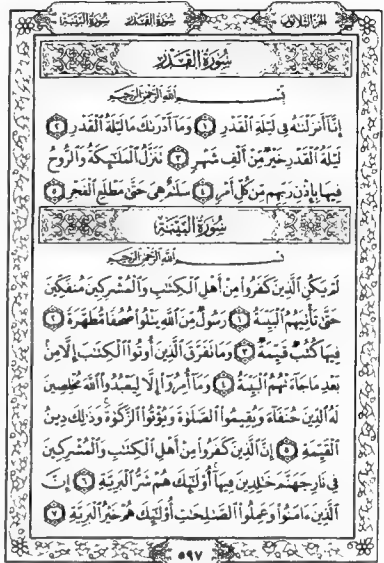 سُورَةُ القَدْرِ سُورَةُ البَيِّنَةِ الجُزْءُ الثَّلَاثُونَ
سُورَةُ القَدْرِ
بِسْمِ ٱللَّهِ ٱلرَّحْمَٰنِ ٱلرَّحِيمِ
إِنَّآ أَنزَلْنَٰهُ فِى لَيْلَةِ ٱلْقَدْرِ ١ وَمَآ أَدْرَىٰكَ مَا لَيْلَةُ ٱلْقَدْرِ ٢
لَيْلَةُ ٱلْقَدْرِ خَيْرٌ مِّنْ أَلْفِ شَهْرٍ ٣ تَنَزَّلُ ٱلْمَلَٰٓئِكَةُ وَٱلرُّوحُ
فِيهَا بِإِذْنِ رَبِّهِم مِّن كُلِّ أَمْرٍ ٤ سَلَٰمٌ هِىَ حَتَّىٰ مَطْلَعِ ٱلْفَجْرِ ٥
سُورَةُ البَيِّنَةِ
بِسْمِ ٱللَّهِ ٱلرَّحْمَٰنِ ٱلرَّحِيمِ
لَمْ يَكُنِ ٱلَّذِينَ كَفَرُوا۟ مِنْ أَهْلِ ٱلْكِتَٰبِ وَٱلْمُشْرِكِينَ مُنفَكِّينَ
حَتَّىٰ تَأْتِيَهُمُ ٱلْبَيِّنَةُ ١ رَسُولٌ مِّنَ ٱللَّهِ يَتْلُوا۟ صُحُفًا مُّطَهَّرَةً ٢
فِيهَا كُتُبٌ قَيِّمَةٌ ٣ وَمَا تَفَرَّقَ ٱلَّذِينَ أُوتُوا۟ ٱلْكِتَٰبَ إِلَّا مِنۢ
بَعْدِ مَا جَآءَتْهُمُ ٱلْبَيِّنَةُ ٤ وَمَآ أُمِرُوٓا۟ إِلَّا لِيَعْبُدُوا۟ ٱللَّهَ مُخْلِصِينَ
لَهُ ٱلدِّينَ حُنَفَآءَ وَيُقِيمُوا۟ ٱلصَّلَوٰةَ وَيُؤْتُوا۟ ٱلزَّكَوٰةَ وَذَٰلِكَ دِينُ
ٱلْقَيِّمَةِ ٥ إِنَّ ٱلَّذِينَ كَفَرُوا۟ مِنْ أَهْلِ ٱلْكِتَٰبِ وَٱلْمُشْرِكِينَ
فِى نَارِ جَهَنَّمَ خَٰلِدِينَ فِيهَآ أُو۟لَٰٓئِكَ هُمْ شَرُّ ٱلْبَرِيَّةِ ٦ إِنَّ
ٱلَّذِينَ ءَامَنُوا۟ وَعَمِلُوا۟ ٱلصَّٰلِحَٰتِ أُو۟لَٰٓئِكَ هُمْ خَيْرُ ٱلْبَرِيَّةِ ٧
٥٩٧